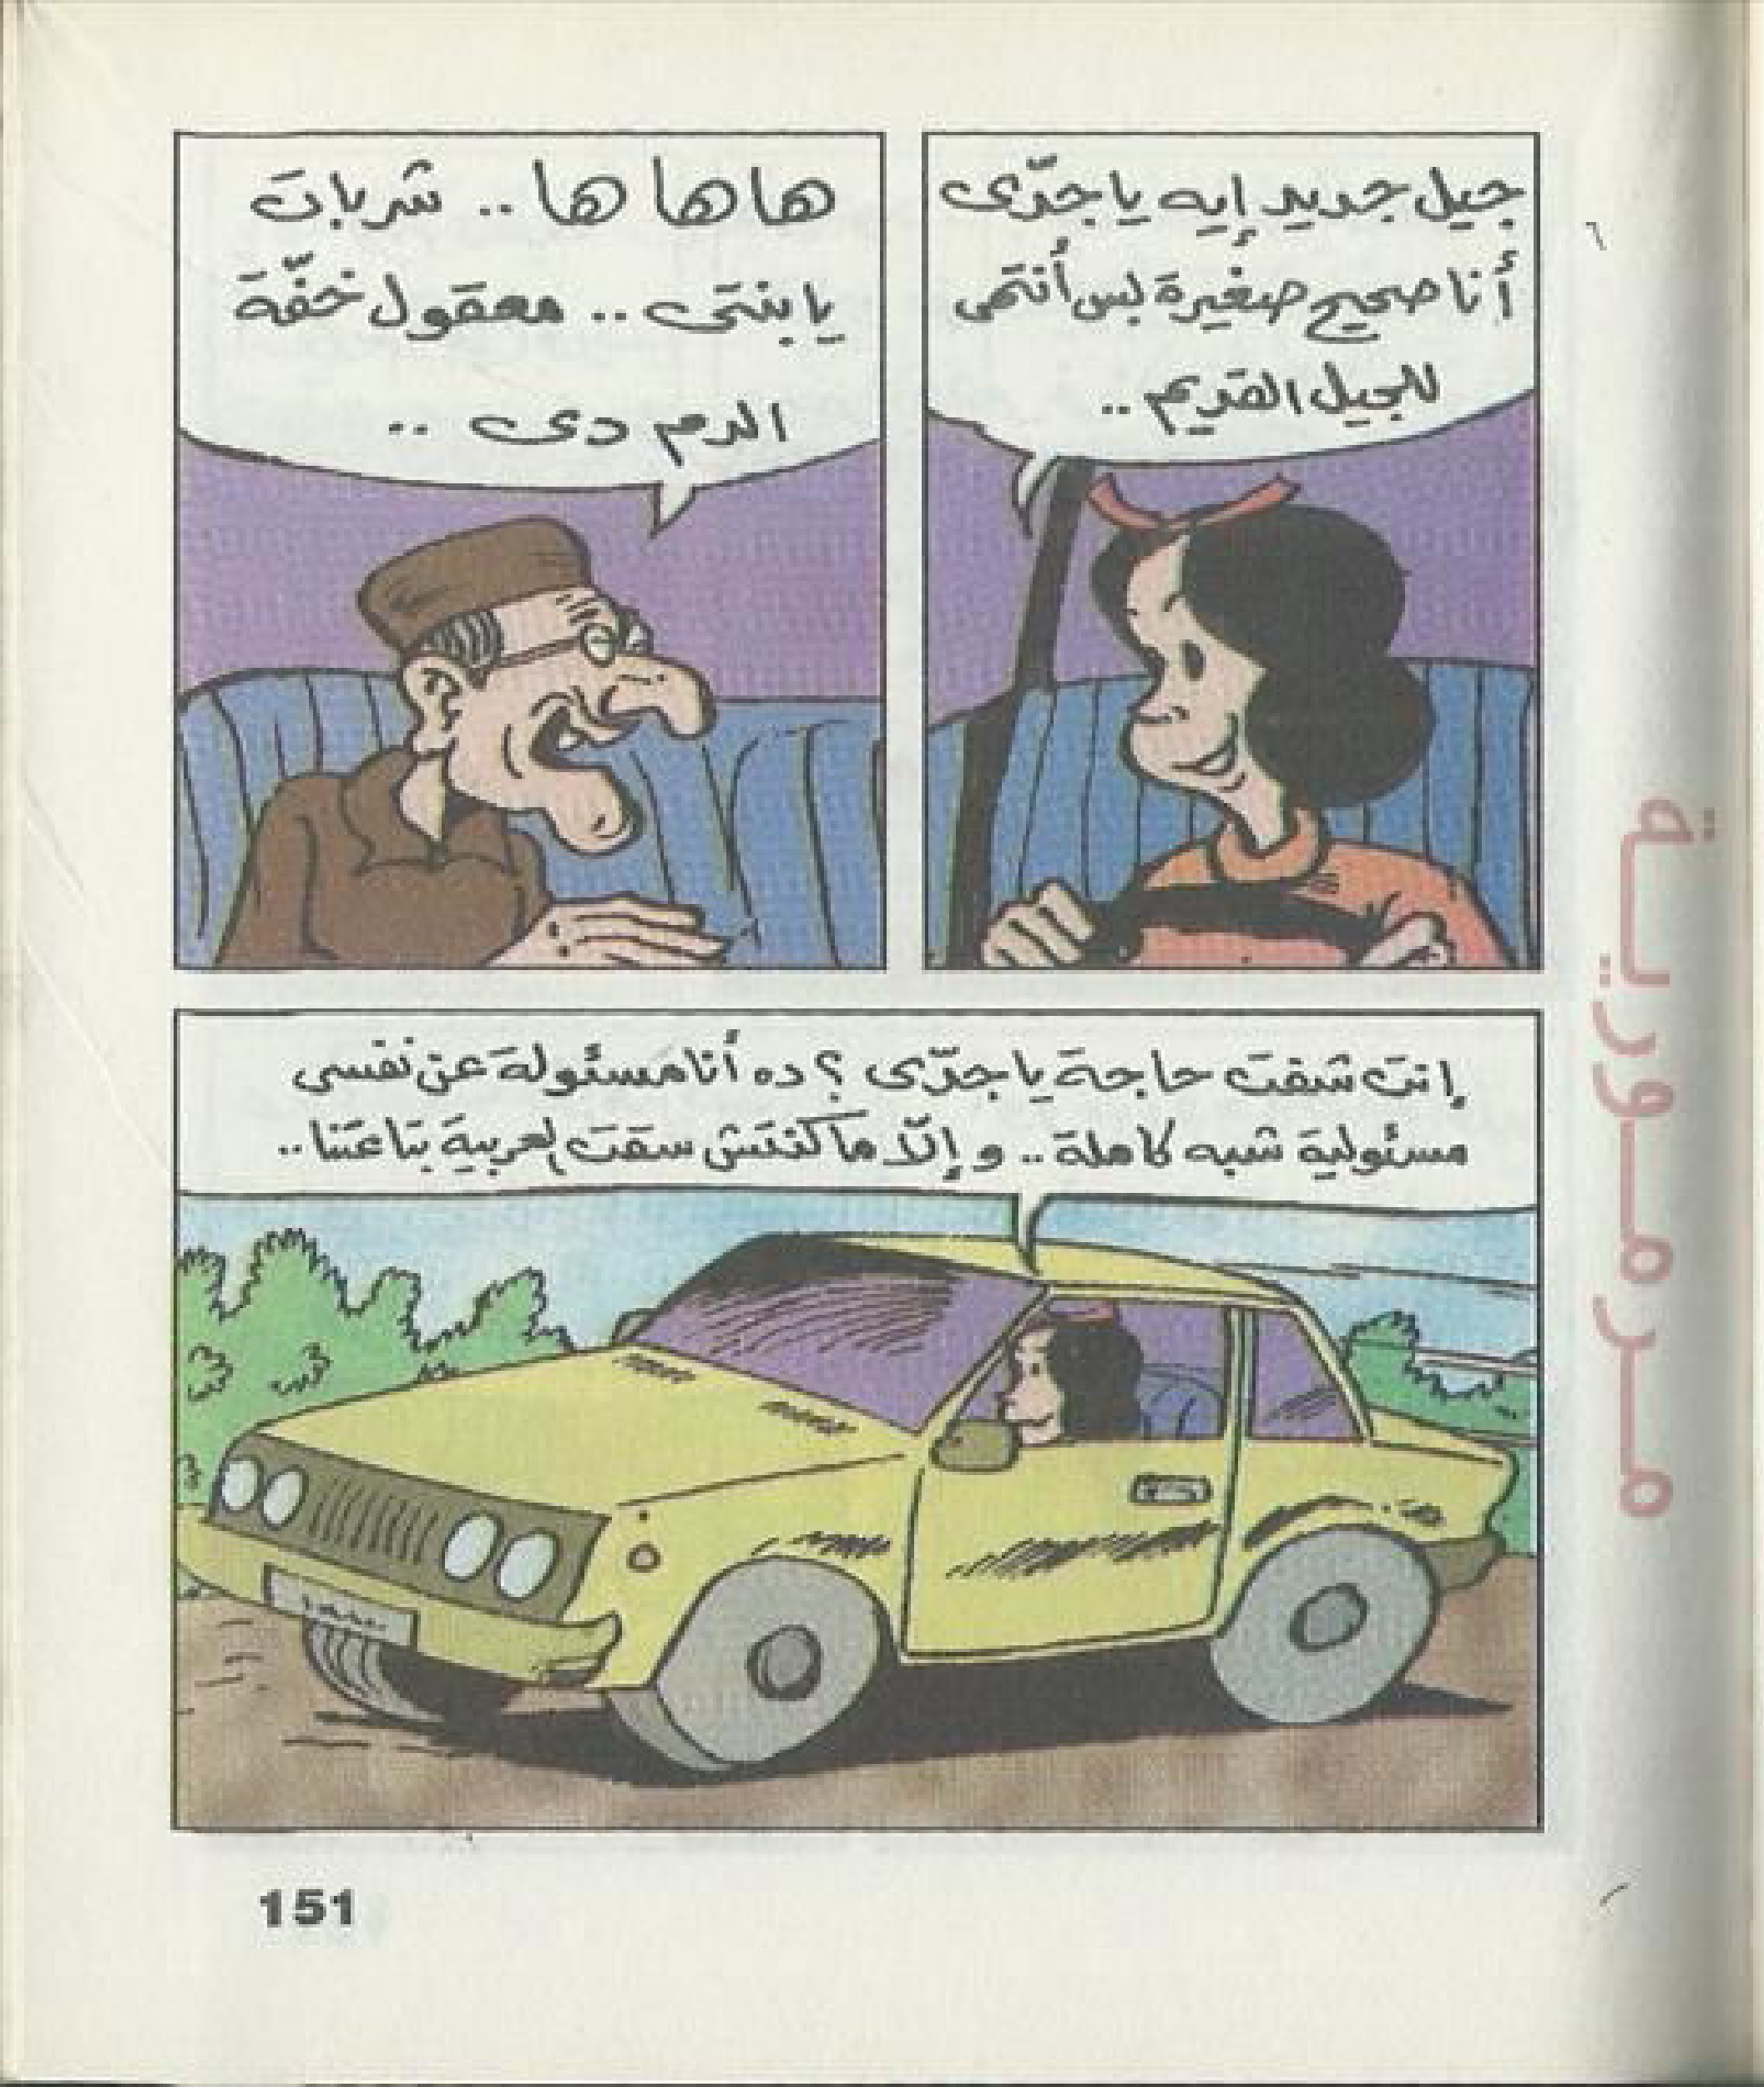 جيل جديد إيه يا جدّى
أنا صحيح صغيرة بس أنتمى
للجيل القديم ..
ها ها ها .. شربات
يا بنتى .. معقول خفّة
الدم دى ..
إنت شفت حاجة يا جدّى ؟ ده أنا مسئولة عن نفسى
مسئولية شبه كاملة .. و إلّا ما كنتش سقت العربية بتاعتنا ..
مرمورية
151